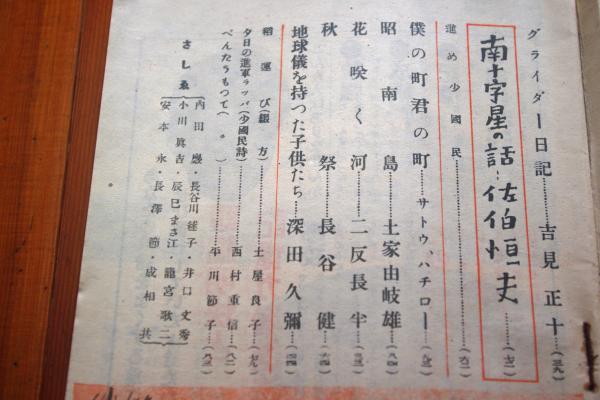 グライダー日記………吉見正十…(三九)
南十字星の話…佐伯恒夫………(七二)
進め少國民………(六二)
僕の町君の町……サトウ、ハチロー…(九三)
昭南島……土家由岐雄…(八四)
花咲く河……二反長半…(三三)
秋祭……長谷健…(六四)
地球儀を持つた子供たち……深田久彌…(四四)
稻運び(綴方)………土屋良子…(七九)
夕日の進軍ラッパ(少國民詩)………西村重信…(八二)
べんたうもつて(〃)………平川節子…(八三)
さしゑ
内田巖・長谷川毬子・井口文秀
小川眞吉・辰巳まさ江・籠宮歌二
安本永・長澤節・成相共